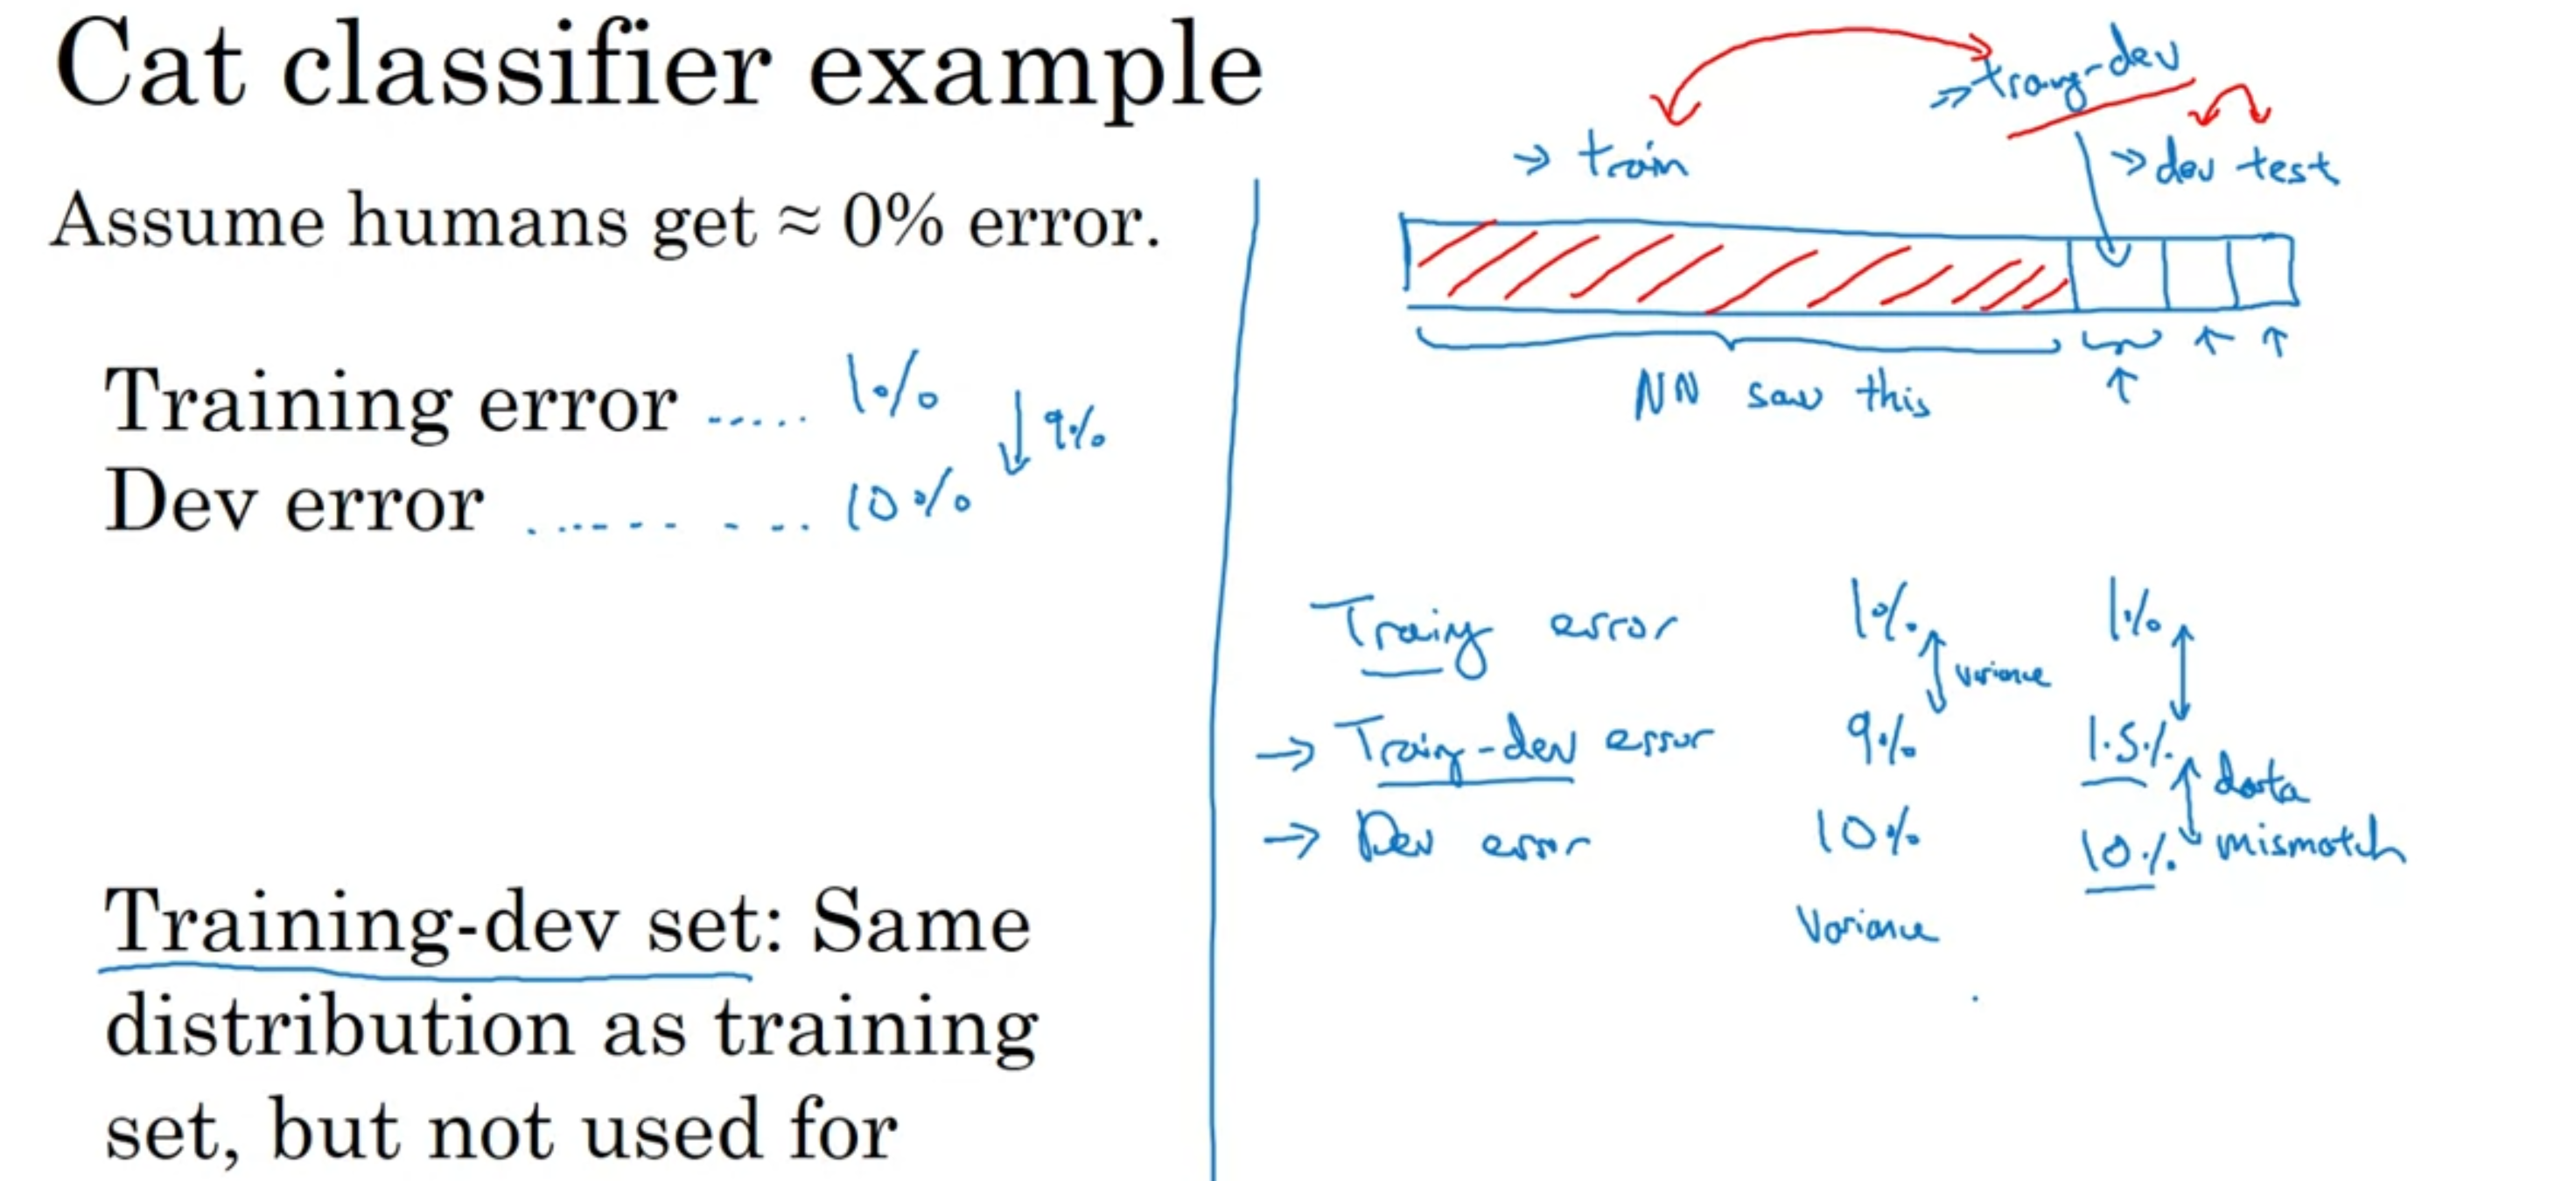 Cat classifier example
Assume humans get ≈ 0% error.
Training error ..... 1%
↓ 9%
Dev error ......... 10%
Training-dev set: Same
distribution as training
set, but not used for
→ train
→ traing-dev
→ dev test
NN saw this
Traing error 1% 1%
variance
→ Traing-dev error 9% 1.5%
data
mismatch
→ Dev error 10% 10%
Variance